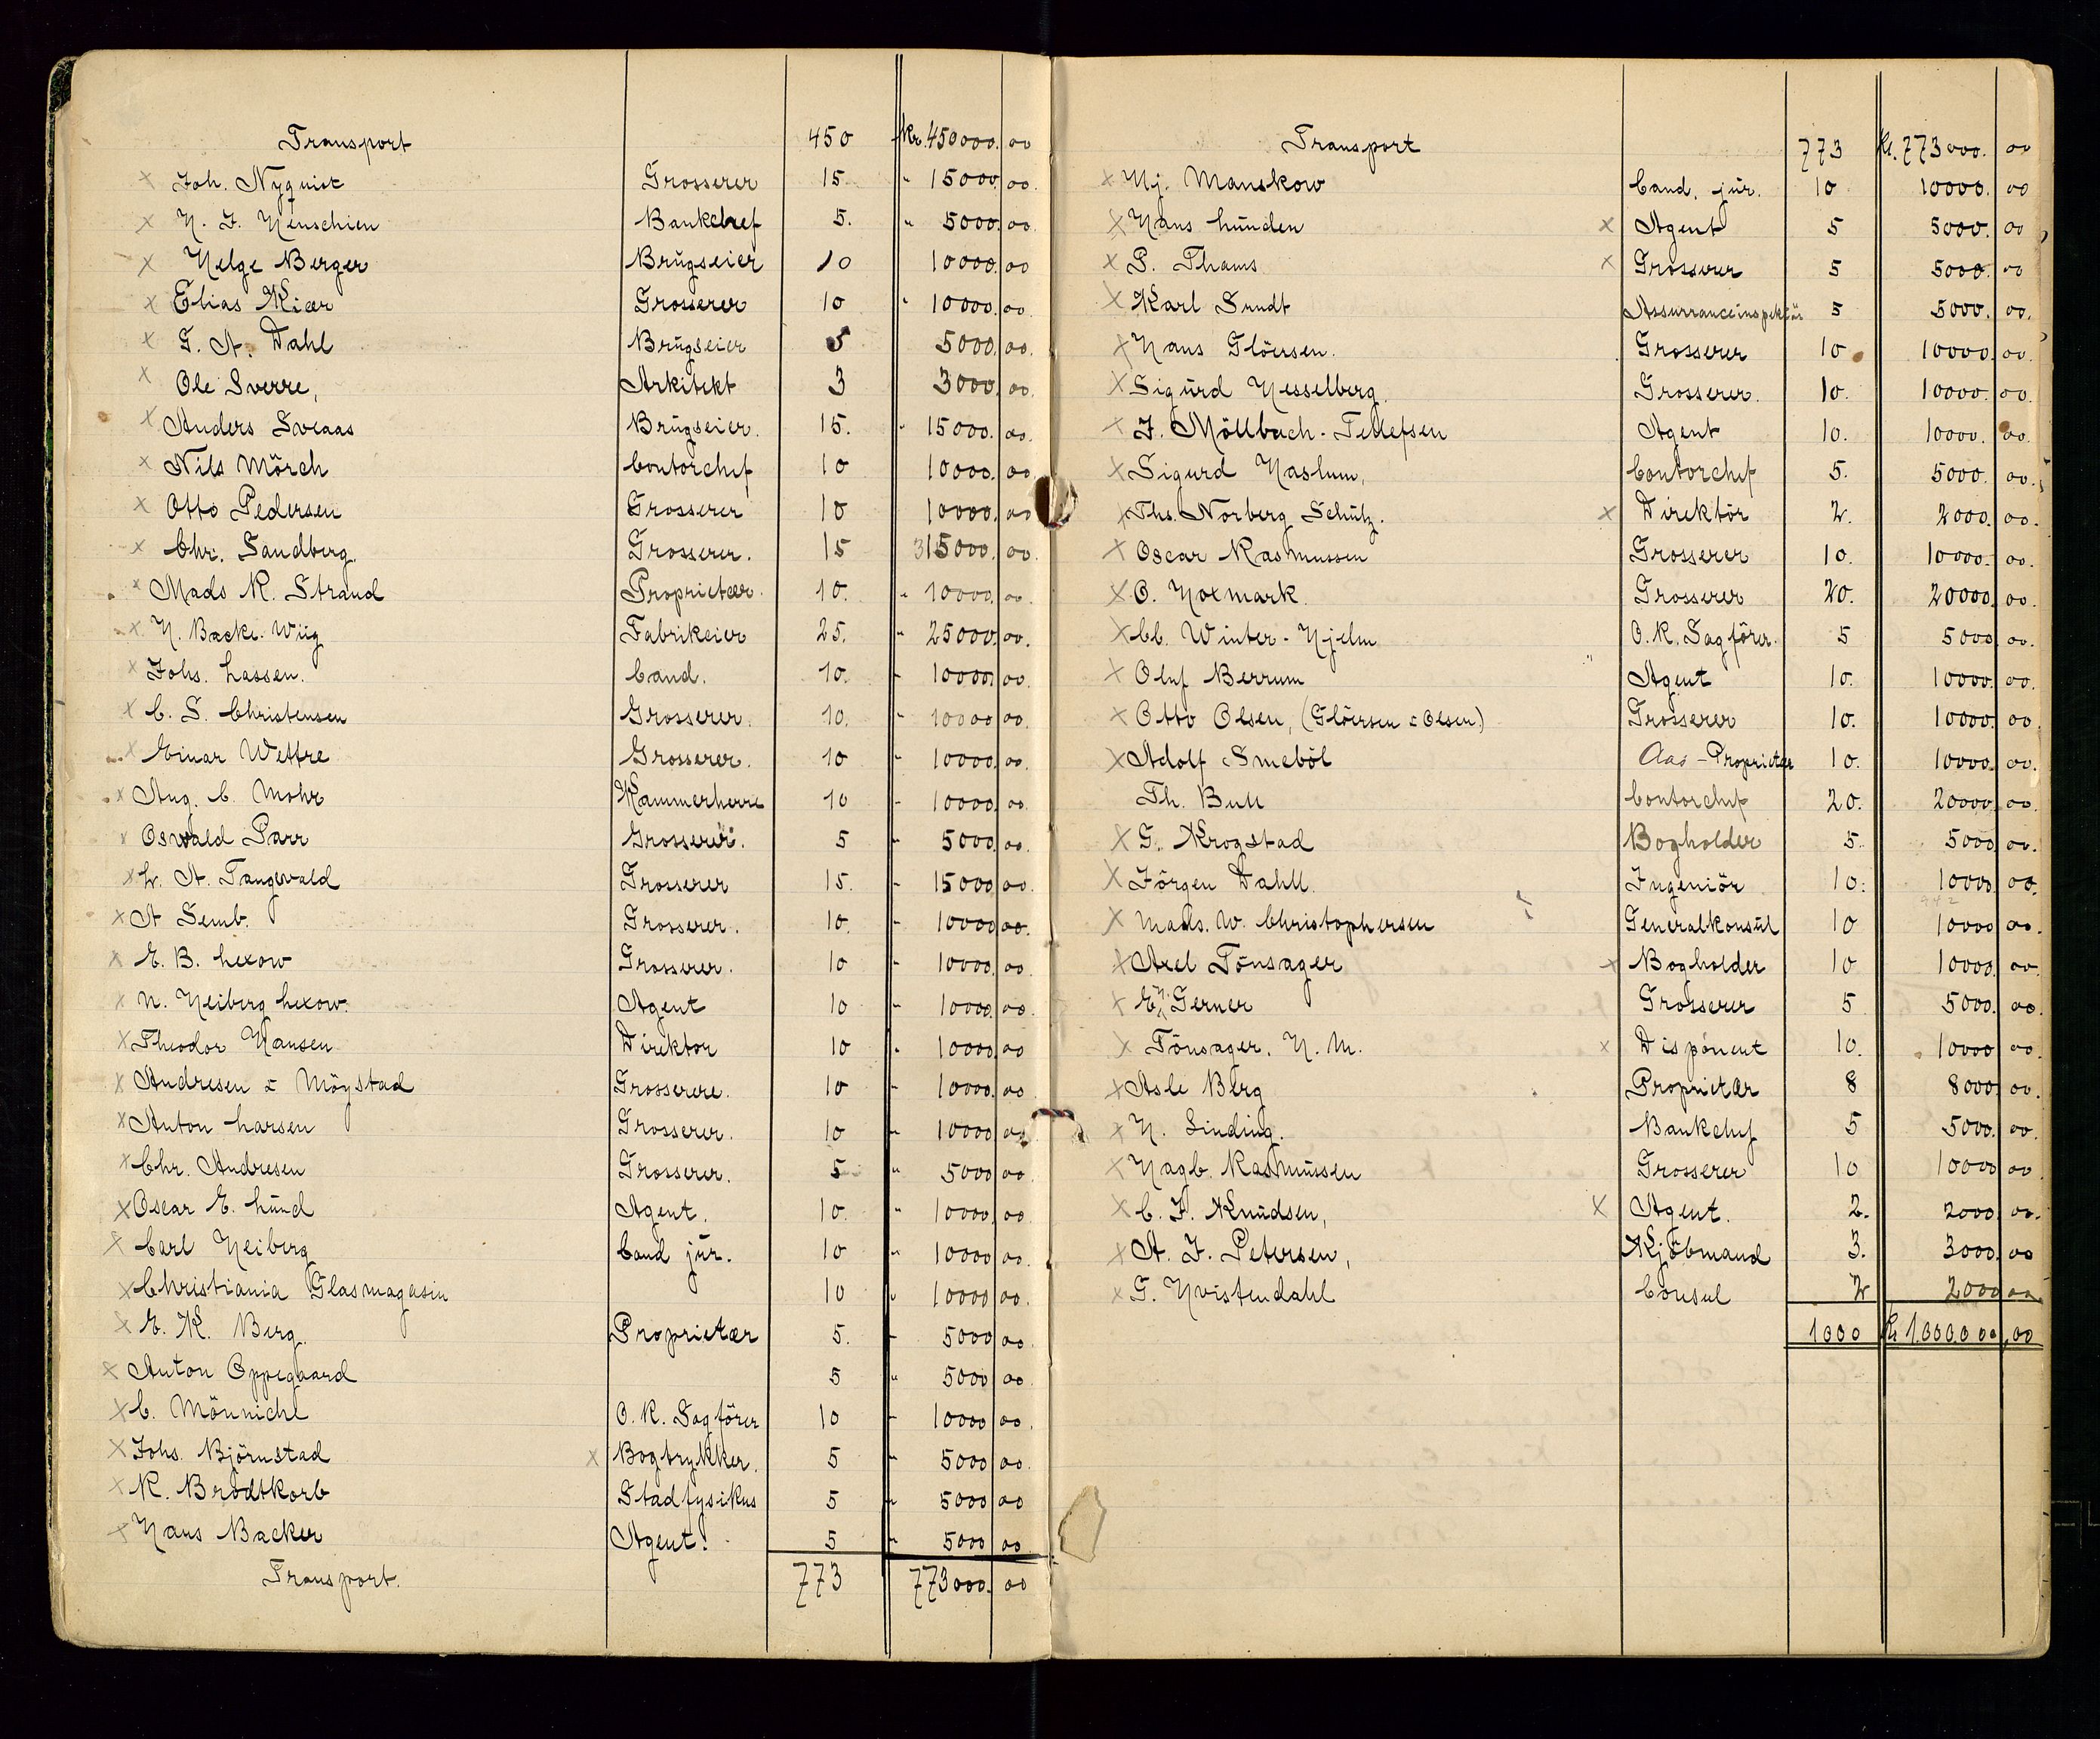 Transport 450 Kr. 450000. 00
× Joh. Nyquist Grosserer 15 " 15000 00.
× H. J. Henschien Bankchef 5. " 5000. 00
× Helge Berger Brugseier 10 10000. 00
× Elias Kiær Grosserer 10 " 10000. 00.
× G. A. Dahl Brugseier 5 5000. 00.
× Ole Sverre, Arkitekt 3 3000. 00.
× Anders Sveaas Brugseier. 15. " 15000. 00.
× Nils Mörch Contorchef 10 10000. 00
× Otto Pedersen Grosserer 10 10000. 00
× Chr. Sandberg. Grosserer. 15 315000. 00.
× Mads R. Strand Proprietær. 10. " 10000. 00.
× H. Backe-Wiig Fabrikeier 25. " 25000 00.
× Johs. Lassen. Cand. 10. - 10000. 00.
× C. S. Christensen Grosserer. 10. - 10000 00.
× Einar Wettre Grosserer. 10 - 10000. 00.
× Aug. C. Mohr Kammerherre 10 - 10000. 00.
× Oswald Parr Grosserer. 5 - 5000. 00.
× L. A. Tangevald Grosserer 15. - 15000 00.
× A Semb. Grosserer. 10. - 10000 00.
× E. B. Lexow Grosserer. 10 - 10000. 00.
× N. Heiberg Lexow. Agent 10 - 10000. 00.
× Theodor Hansen Direktor 10 " 10000. 00
× Andresen & Möystad Grosserere. 10 - 10000. 00
× Anton Larsen Grosserer. 10 " 10000 00
× Chr. Andresen Grosserer. 5 " 5000 00
× Oscar E. Lund Agent. 10. " 10000. 00
× Carl Heiberg Cand jur. 10 " 10000. 00.
× Christiania Glasmagasin 10 " 10000 00.
× E. K. Berg. Proprietær 5. - 5000 00.
× Anton Oppegaard 5 " 5000 00.
× C. Mönnichl O. R. Sagförer 10 - 10000 00.
× Johs. Björnstad × Bogtrykker. 5 " 5000 00.
× R. Brodtkorb Stadfysikus 5 " 5000 00
× Hans Backer Agent. 5 " 5000 00
Transport. 773 773000. 00
Transport 773 Kr. 773000. 00
× Hj. Manskow Cand. jur. 10 10000. 00
× Hans Lunden × Agent 5 5000. 00
× P. Thams × Grosserer 5 5000. 00
× Karl Sundt Assurranceinspektør 5 5000. 00.
× Hans Glöersen. Grosserer 10 10000. 00.
× Sigurd Hesselberg. Grosserer. 10. 10000. 00.
× J. Möllbach-Tellefsen Agent 10. 10000. 00.
× Sigurd Haslum, Contorchef 5. 5000. 00.
× Ths. Norberg Schulz. × Direktör 2. 2000. 00.
× Oscar Rasmussen Grosserer 10. 10000. 00.
× O. Hoxmark. Grosserer 20. 20000. 00.
× Cl. Winter-Hjelm O. R. Sagförer. 5 5000 00.
× Oluf Berrum Agent 10. 10000. 00.
× Otto Olsen, (Glöersen & Olsen.) Grosserer 10. 10000. 00.
× Adolf Smeböl Aas-Proprietær 10. 10000. 00.
Th. Bull Contorchef 20. 20000. 00.
× G. Krogstad Bogholder 5. 5000 00.
× Jörgen Dahll. Ingeniör 10. 10000 00.
× Mads. W. Christophersen Generalkonsul 10 10000 00.
× Axel Tönsager × Bogholder 10 10000. 00.
× E. H. Gerner Grosserer 5 5000. 00.
× Tönsager, H. M. × Disponent 10. 10000 00
× Asle Berg Proprietær 8 8000 00.
× H. Sinding. Bankchef 5 5000. 00.
× Hagb. Rasmussen Grosserer 10 10000 00
× C. F. Knudsen, × Agent. 2. 2000. 00.
× A. J. Petersen, Kjöbmand 3. 3000. 00
× G. Hvistendahl Consul 2 2000 00
1000 Kr 1.000.000,00